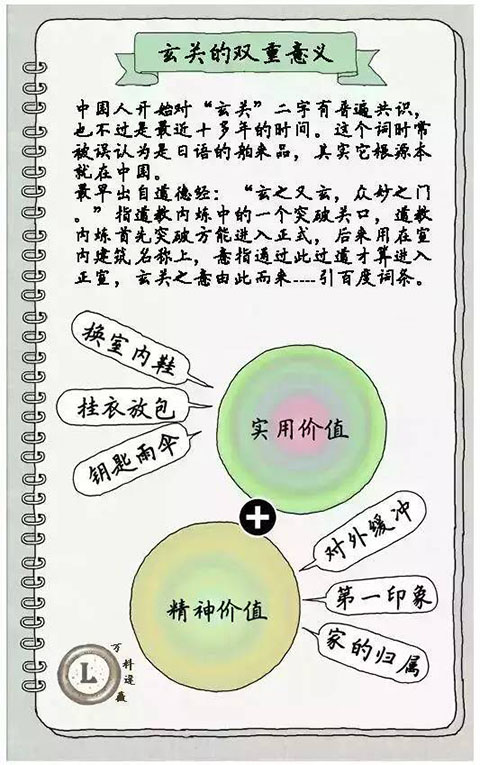 玄关的双重意义
中国人开始对“玄关”二字有普遍共识，
也不过是最近十多年的时间。这个词时常
被误认为是日语的舶来品，其实它根源本
就在中国。
最早出自道德经：“玄之又玄，众妙之门
。”指道教内炼中的一个突破关口，道教
内炼首先突破方能进入正式，后来用在室
内建筑名称上，意指通过此过道才算进入
正室，玄关之意由此而来----引百度词条。
换室内鞋
挂衣放包
钥匙雨伞
实用价值
+
对外缓冲
第一印象
家的归属
精神价值
L
万
科
逶
薇